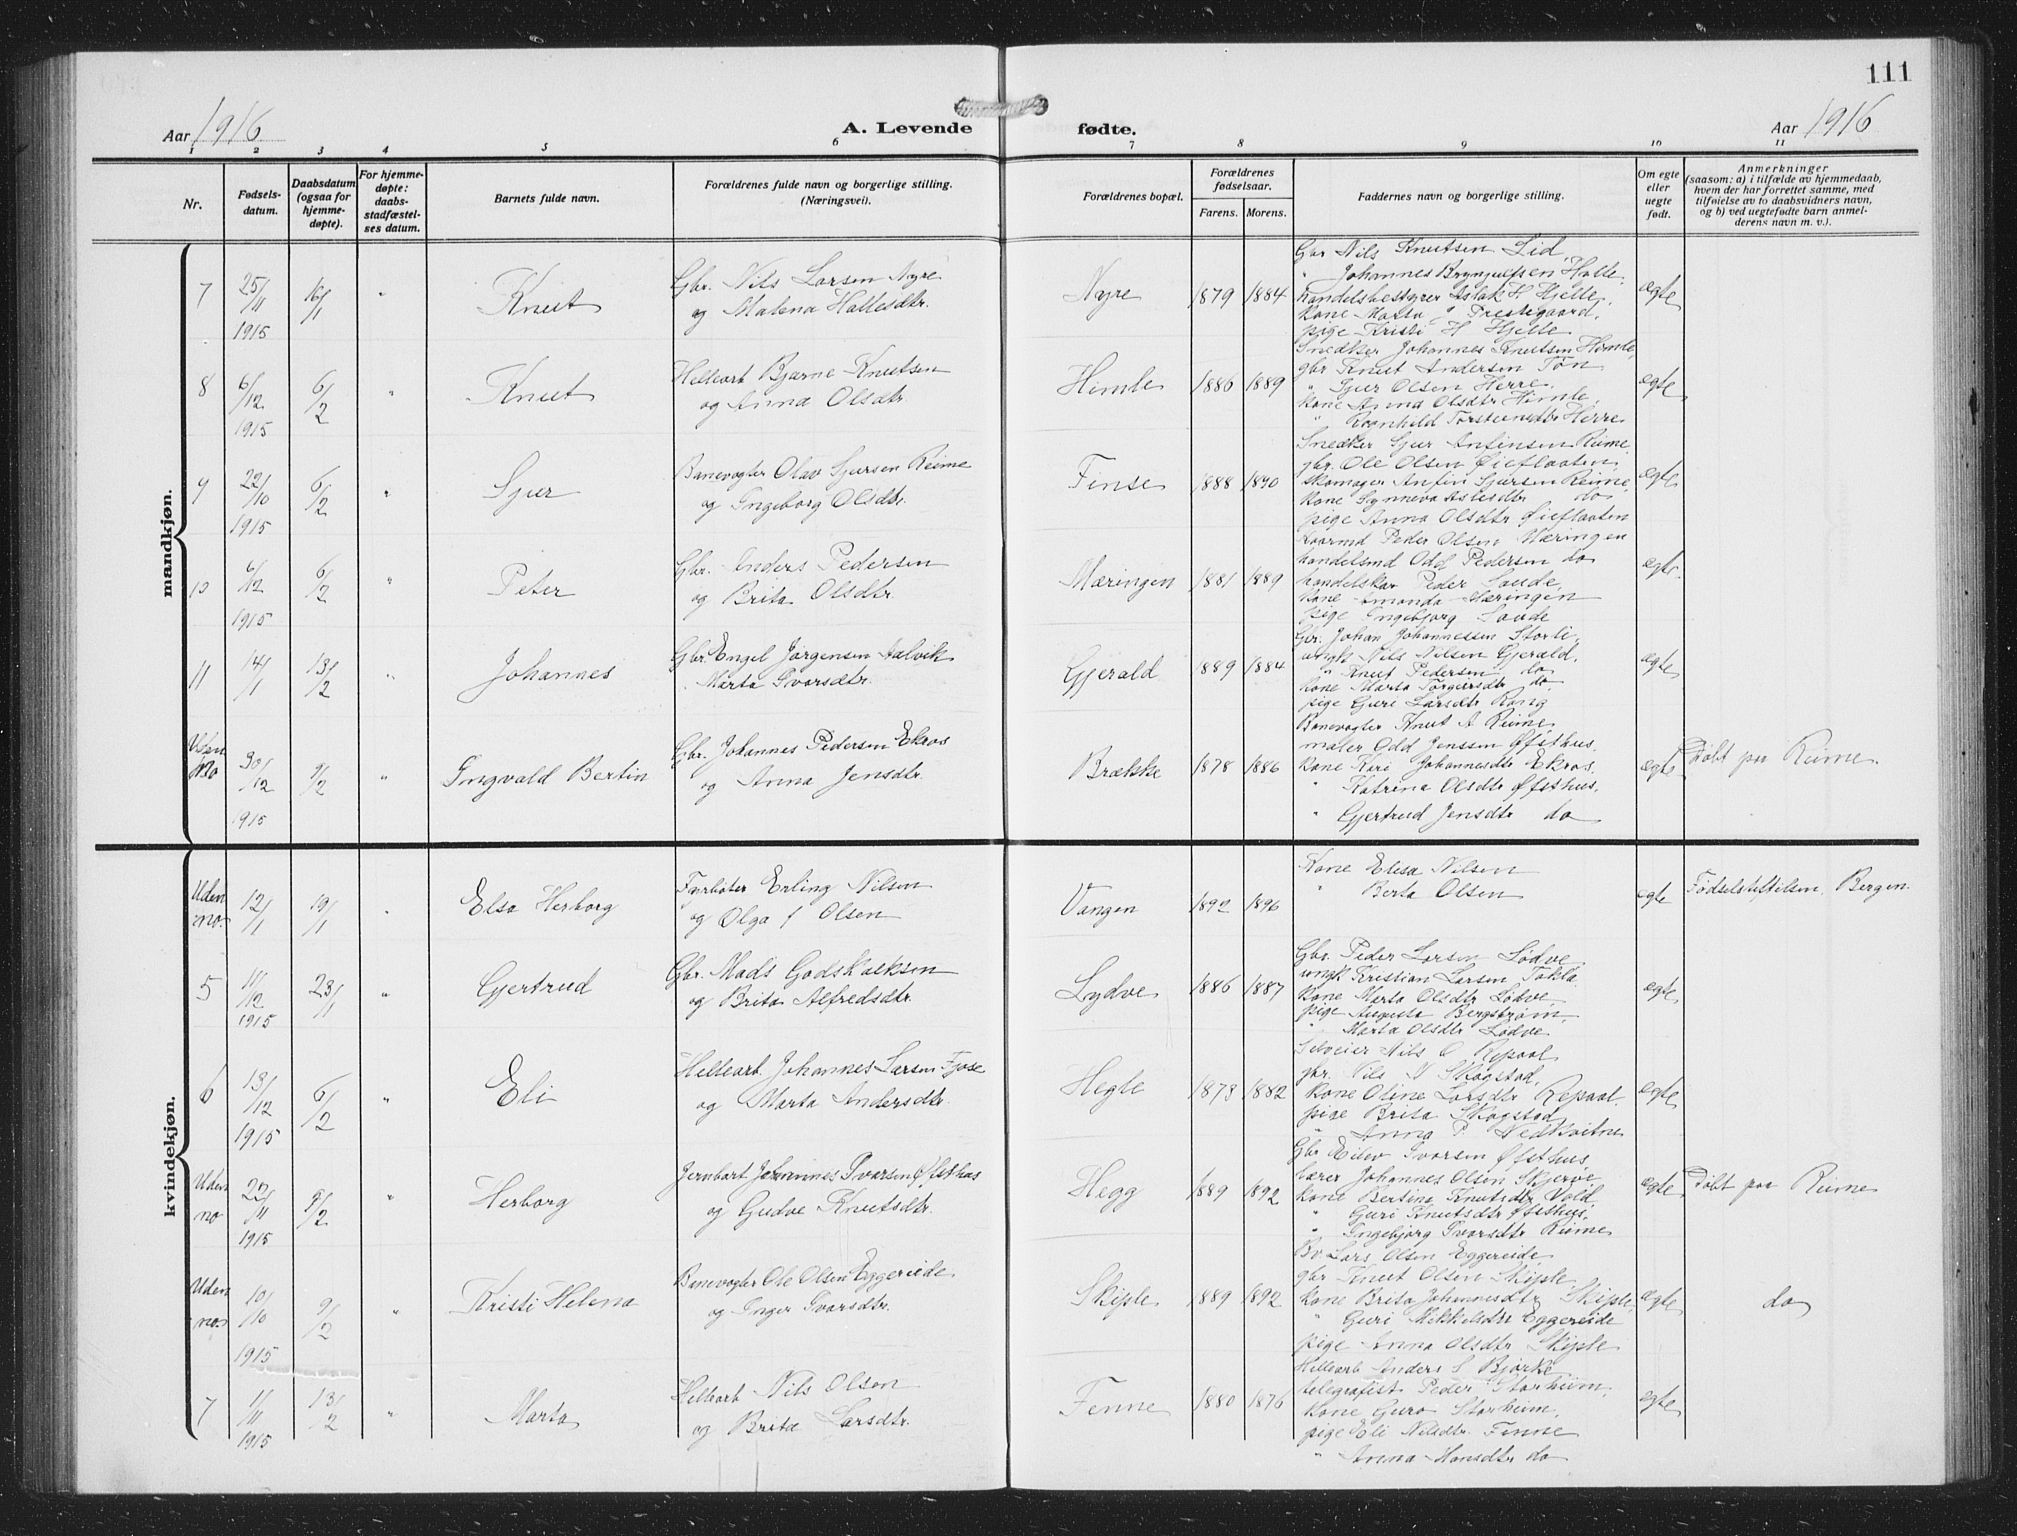 111
Aar 1916
A. Levende fødte.
Aar 1916
1 2 3 4 5 6 7 8 9 10 11
Nr.
Fødsels-
datum.
Daabsdatum
(ogsaa for
hjemme-
døpte).
For hjemme-
døpte:
daabs-
stadfæstel-
ses datum.
Barnets fulde navn.
Forældrenes fulde navn og borgerlige stilling.
(Næringsvei).
Forældrenes bopæl.
Forældrenes
fødselsaar.
Farens. Morens.
Faddernes navn og borgerlige stilling.
Om egte
eller
uegte
født.
Anmerkninger
(saasom: a) i tilfælde av hjemmedaab,
hvem der har forrettet samme, med
tilføielse av to daabsvidners navn,
og b) ved uegtefødte barn anmel-
derens navn m. v.).
mandkjøn.
7
25/11
1915
16/1
"
Knut
Gbr. Nils Larsen Nyre
og Malena Hallesdtr.
Nyre
1879 1884
Gbr Nils Knutsen Lid,
" Johannes Brynjulfsen Halle,
handelsbestyrer Aslak H Hjelle,
kone Marta J Prestegaard,
pige Kristi H Hjelle
egte
8
6/12
1915
6/2
"
Knut
Hellearb Bjarne Knutsen
og Anna Olsdtr.
Himle
1886 1889
Snedker Johannes Knutsen Himle,
gbr Knut Andersen Tøn
" Sjur Olsen Herre,
kone Anna Olsdtr Himle,
" Ragnhild Torsteinsdtr Herre
egte
9
22/10
1915
6/2
"
Sjur
Banevogter Olav Sjursen Reime
og Ingeborg Olsdtr.
Finse
1888 1890
Snedker Sjur Anfinsen Reime,
gbr. Ole Olsen Øieflaaten,
skomager Anfin Sjursen Reime,
kone Synneva Aslesdtr do
pige Anna Olsdtr Øieflaaten
egte
10
6/12
1915
6/2
"
Peter
Gbr. Anders Pedersen
og Brita Olsdtr.
Mæringen
1881 1889
Kaarmd Peder Olsen Mæringen
handelsmd Odd Pedersen do
handelskar Peder Saude,
kone Amanda Mæringen
pige Ingebjorg Saude
egte.
11
14/1
13/2
"
Johannes
Gbr. Engel Jørgensen Aalvik
Marta Ivarsdtr.
Gjerald
1889 1884
Gbr. Johan Johannessen Storli,
ungk Nils Nilsen Gjerald,
" Knut Pedersen do
kone Marta Torgersdtr do,
pige Guri Larsdtr Rong
egte
Uden
No
30/12
1915
9/2
"
Ingvald Bertin
Gbr. Johannes Pedersen Ekros
og Anna Jensdtr.
Brække
1878 1886
Banevogter Knut A Reime
maler Odd Jenssen Øfsthus,
kone Kari Johannesdtr Ekros,
" Katrina Olsdtr Øfsthus,
" Gjertrud Jensdtr do
egte
Døbt paa Reime.
kvindekjøn.
Uden
no.
12/1
19/1
"
Elsa Herborg
Fyrbøter Erling Nilsen
og Olga J Olsen
Vangen
1892 1896
Kone Elisa Nilsen
" Berta Olsen
egte
Fødselstiftelsen, Bergen.
5
11/12
1915
23/1
"
Gjertrud
Gbr. Mads Godskalksen
og Brita Alfredsdtr.
Lydve
1886 1887
Gbr. Peder Larsen Lødve
ungk Kristian Larsen Takla
kone Marta Olsdtr Lødve,
pige Augusta Bergstrøm,
" Marta Olsdtr Lødve
egte
6
13/12
1915
6/2
"
Eli
Hellearb Johannes Larsen Fjose
og Marta Andersdtr.
Hegle
1873 1882
Selveier Nils O Repaal
gbr. Nils N Skogstad,
kone Oline Larsdtr Repaal.
pige Brita Skogstad
" Anna P. Nedkvitne
egte
Uden
no
22/11
1915
9/2
"
Herborg
Jernbarb Johannes Ivarsen Øfsthus
og Gudve Knutsdtr.
Hegg
1889 1892
Gbr Eilev Ivarsen Øfsthus
lærer Johannes Olsen Skjerve
kone Bertina Knutsdtr Vold
" Guri Knutsdtr Øfsthus,
" Ingebjorg Ivarsdtr Reime
egte
Døbt paa Reime
Uden
no.
10/10
1915
9/2
"
Kristi Helena
Banevogter Ole Olsen Eggereide
og Inger Ivarsdtr.
Skiple
1889 1892
Bv Lars Olsen Eggereide,
gbr Knut Olsen Skiple,
kone Brita Johannesdtr Skiple,
" Guri Mikkelsdtr Eggereide
pige Anna Olsdtr Skiple
egte
do
7
1/11
1915
13/2
"
Marta
Hellearb Nils Olsen
og Brita Larsdtr.
Fenne
1880 1876
Hellearb Anders S Bjørke
telegrafist Peder Storheim,
kone Guro Storheim,
pige Eli Nilsdtr. Finne
" Anna Hansdtr do
egte